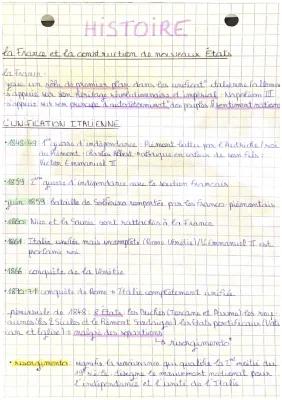 HiSTOiRE
la France et la construction de nouveaux États
La France :
- joue un rôle de premier plan dans les unificat° italienne
- s'appuie sur son héritage révolutionnaire et impérial Napoléon III
- s'appuie sur son principe d'autodéterminat° des peuples
L'UNIFICATION ITALIENNE
•1848-49 1ère guerre d'indépendance : Piémont battu par l'Autriche / roi
du Piémont (Charles Albert) abdique en faveur de son fils :
Victor Emmanuel II
•1859 guerre d'indépendance avec le soutien français
•juin 1859 Bataille de Solférino remportée par les franco-piémontais
•1860 Nice et la Savoie sont rattachées à la France
•1861 Italie unifiée mais incomplète (Rome Vénétie) V.Emmanuel II est
proclamé roi
•1866 conquête de la Vénétie
•1870-71 conquête de Rome → Italie complètement unifiée
péninsule de 1848 : 8 États les Duchés (Toscane et Parme) les roy
aumes (les 2 Siciles et le Piémont Sardaigne) les États pontificaux
et église) = malgré des
↳ risorgimento
•risorgimento signifie la renaissance qui qualifie la moitié du
19e siècle. désigne le mouvement national pour
l'indépendance et l'unité de l'Italie